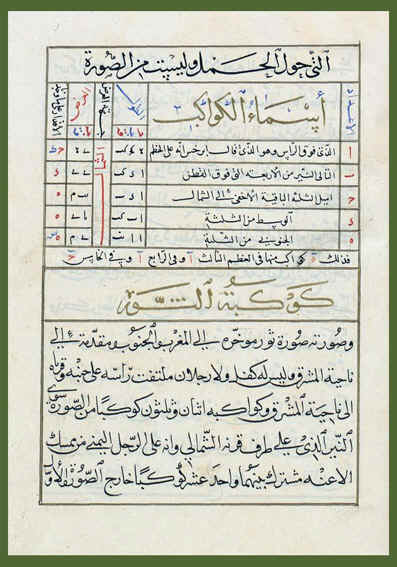 التى حول الحمل وليست من الصورة
أسماء الكواكب
ا الذى فوق الراس وهو الذى قال ابرخس انه على الخطم
ب التالى النير من الاربعة التى فوق القطن
ج اميل الثلثة الباقية الاخفى الى الشمال
د الوسط من الثلثة
ه الجنوبى من الثلثة
فذلك ه كواكب منها فى العظم الثالث ا وفى الرابع ا وفى الخامس ج
كوكبة الثور
وصورته صورة ثور موخره الى المغرب والجنوب ومقدمه الى
ناحية المشرق وليس له كفل ولا رجلان ملتفت راسه على جنبه وقرناه
الى ناحية المشرق وكواكبه اثنان وثلثون كوكبا من الصورة سوى
النير الذى على طرف قرنه الشمالى وانه على الرجل اليمنى من ممسك
الاعنه مشترك بينهما واحد عشر كوكبا خارج الصورة والاول